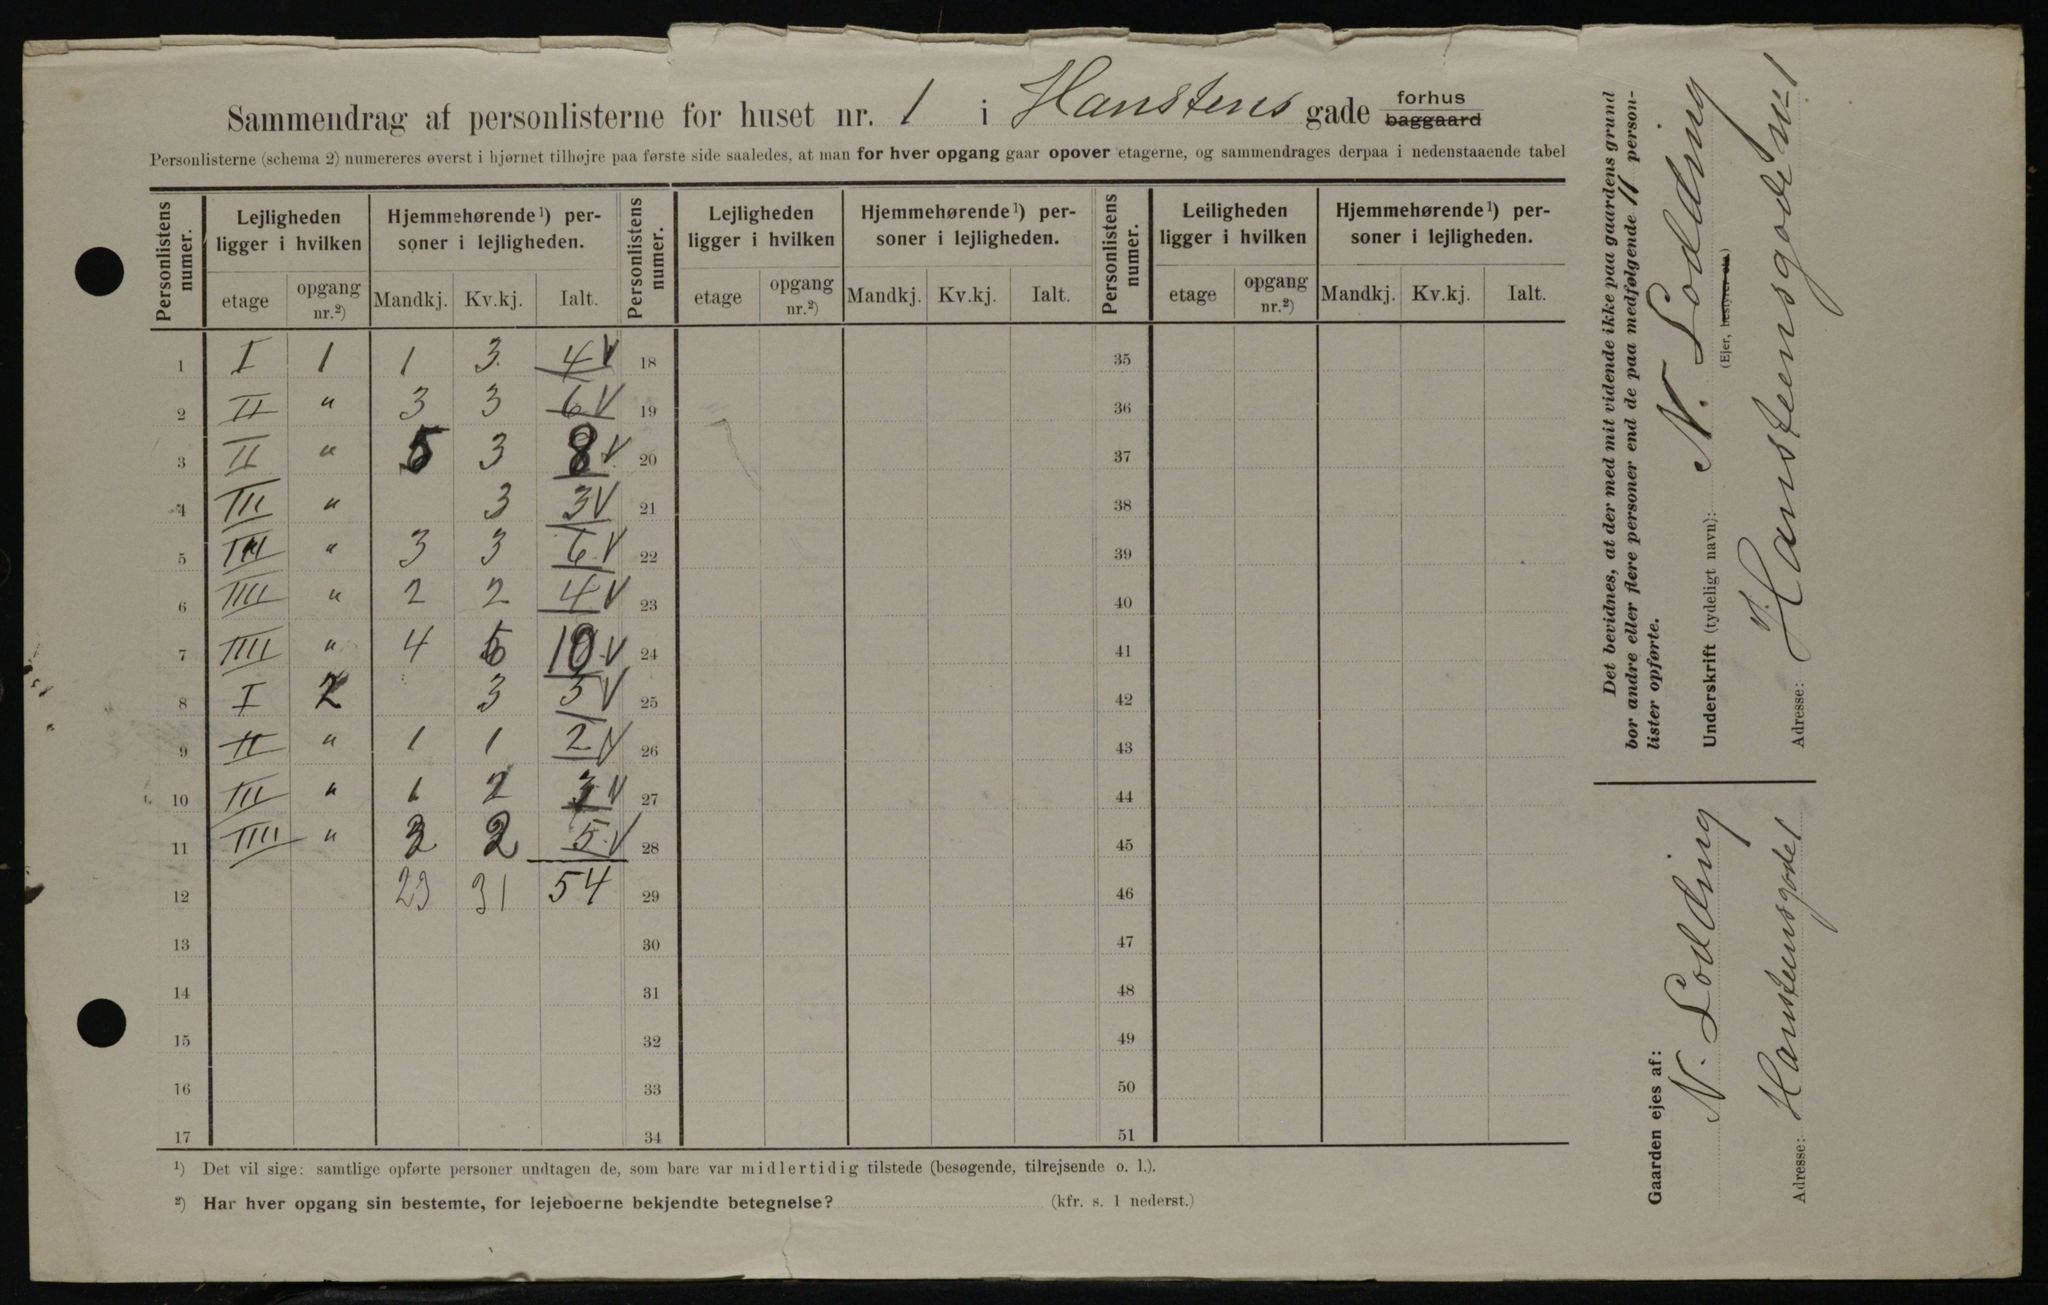 Sammendrag af personlisterne for huset nr. 1 i Hanstens gade forhus baggaard
Personlisterne (schema 2) numereres øverst i hjørnet tilhøjre paa første side saaledes, at man for hver opgang gaar opover etagerne, og sammendrages derpaa i nedenstaaende tabel
Personlistens numer. Lejligheden ligger i hvilken Hjemmehørende¹) personer i lejligheden. Personlistens numer. Lejligheden ligger i hvilken Hjemmehørende¹) personer i lejligheden. Personlistens numer. Leiligheden ligger i hvilken Hjemmehørende¹) personer i lejligheden.
etage opgang nr.²) Mandkj. Kv.kj. Ialt. etage opgang nr.²) Mandkj. Kv.kj. Ialt. etage opgang nr.²) Mandkj. Kv.kj. Ialt.
1 I 1 1 3 4 V 18 35
2 II " 3 3 6 V 19 36
3 II " 5 3 8 V 20 37
4 III " 3 3 V 21 38
5 III " 3 3 6 V 22 39
6 IIII " 2 2 4 V 23 40
7 IIII " 4 10 V 24 41
8 I 2 3 3 V 25 42
9 II " 1 1 2 V 26 43
10 III " 1 2 3 V 27 44
11 IIII " 3 2 5 V 28 45
12 23 31 54 29 46
13 30 47
14 31 48
15 32 49
16 33 50
17 34 51
¹) Det vil sige: samtlige opførte personer undtagen de, som bare var midlertidig tilstede (besøgende, tilrejsende o. l.).
²) Har hver opgang sin bestemte, for lejeboerne bekjendte betegnelse? (kfr. s. 1 nederst.)
Det bevidnes, at der med mit vidende ikke paa gaardens grund
bor andre eller flere personer end de paa medfølgende 11 person-
lister opførte.
Underskrift (tydeligt navn): N. Lodding
(Ejer, bestyrer etc.)
Adresse: Hansteensgade nr 1
Gaarden ejes af:
N. Lodding
Adresse: Hansteensgade 1